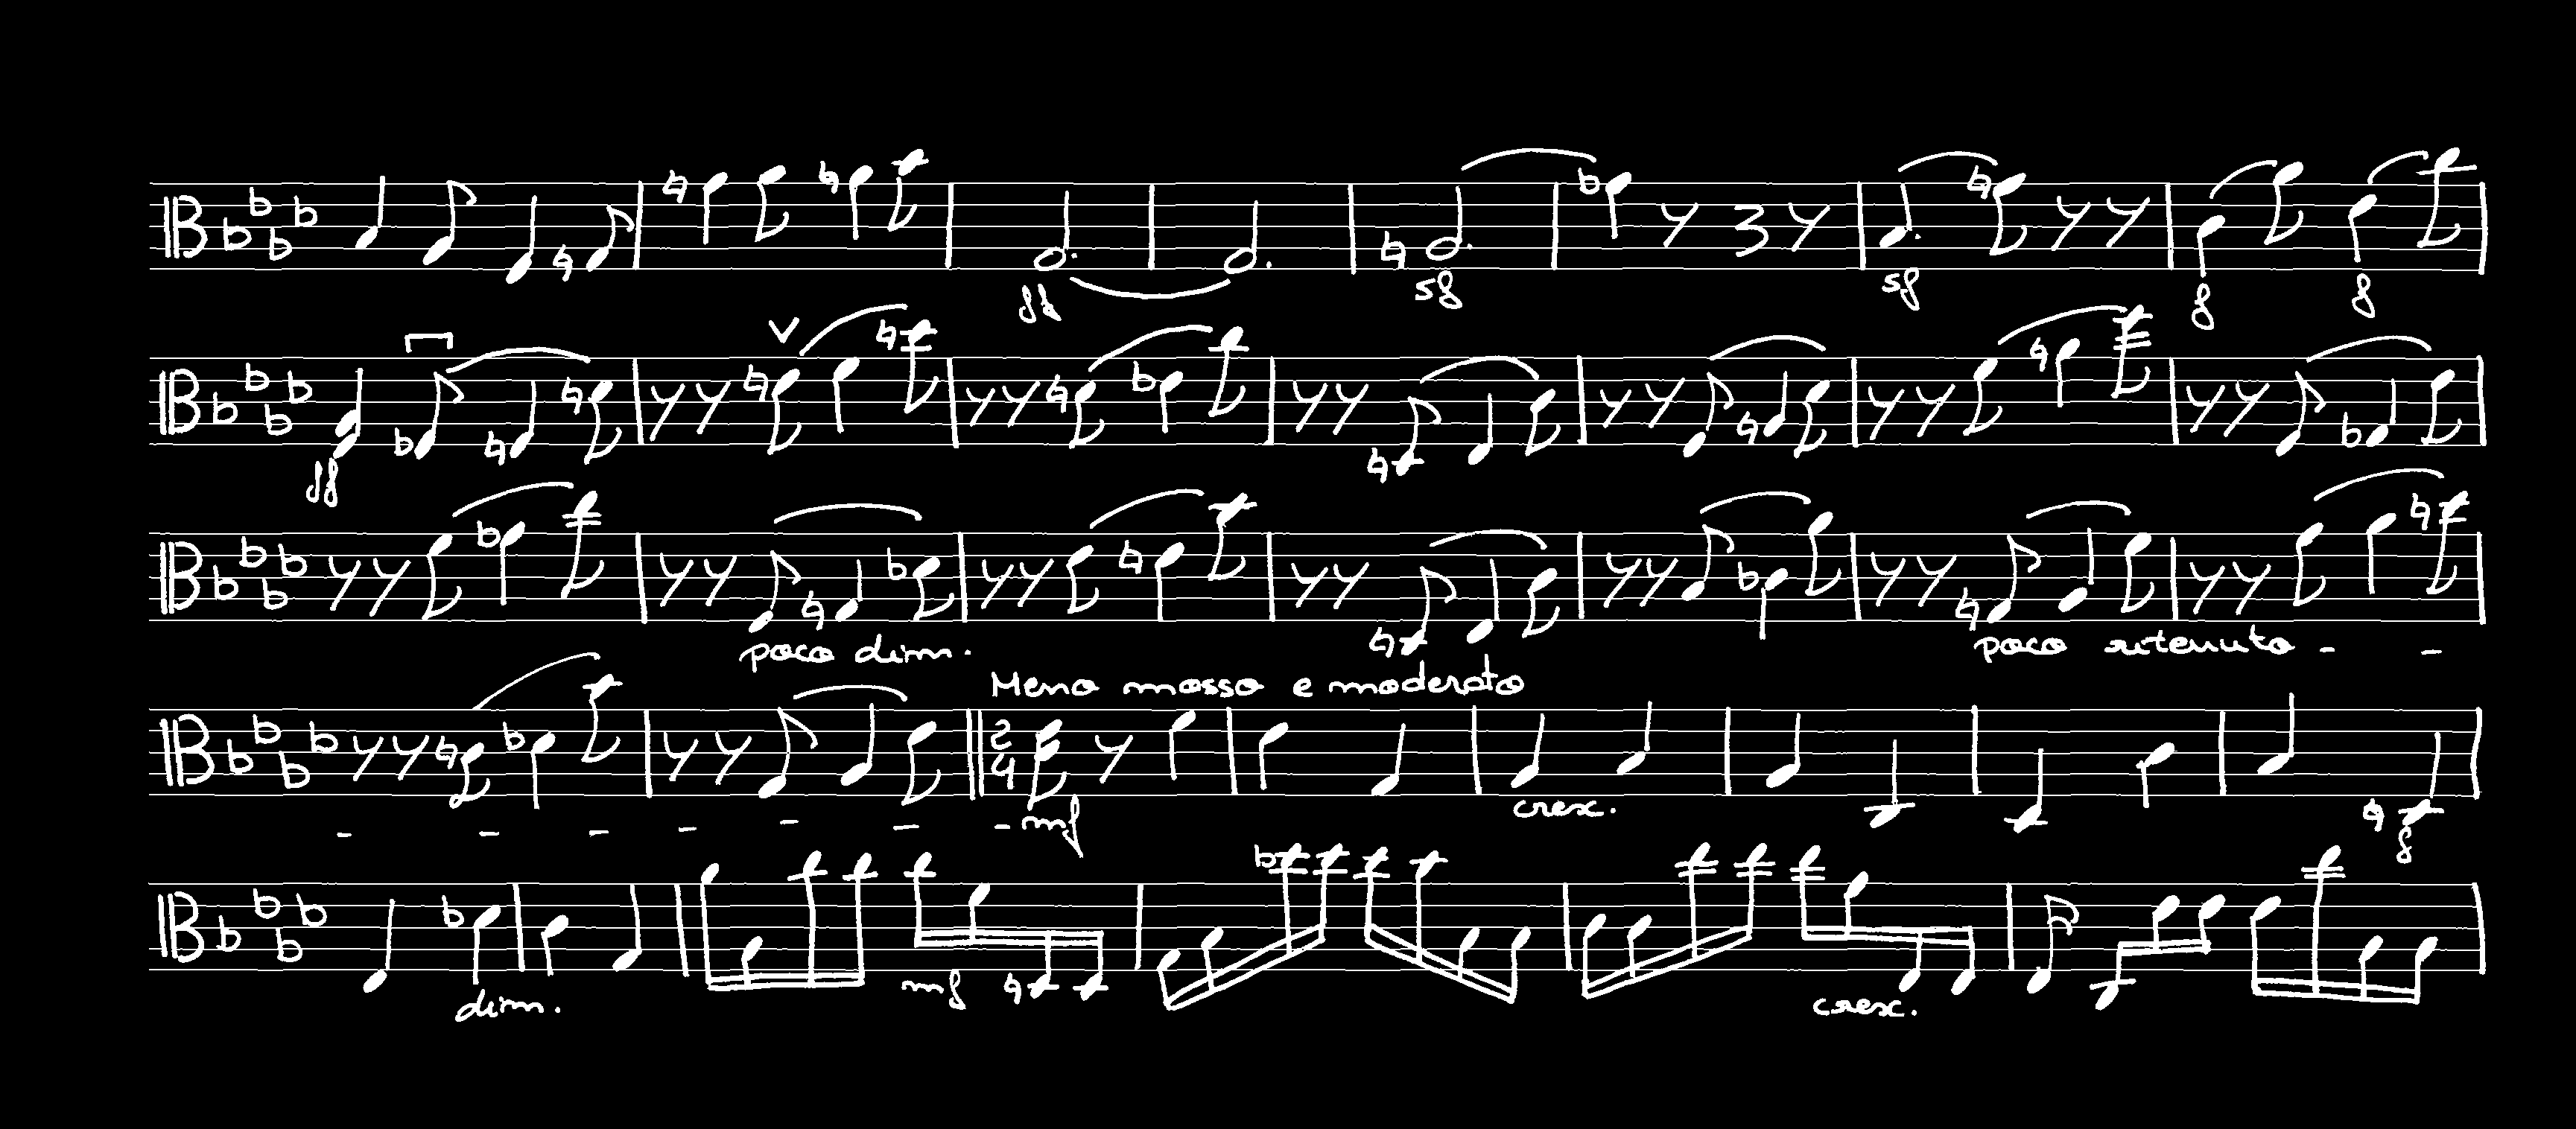 ff sf sf f f
ff
poco dim. poco ritenuto - -
Meno mosso e moderato
2
4
cresc.
- - - - - - - mf f
mf
dim. cresc.